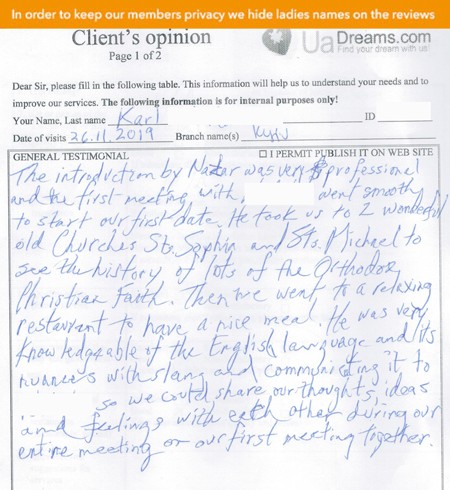 In order to keep our members privacy we hide ladies names on the reviews
Client's opinion
Page 1 of 2
UaDreams.com
Find your dream with us!
Dear Sir, please fill in the following table. This information will help us to understand your needs and to
improve our services. The following information is for internal purposes only!
Your Name, Last name Karl ID
Date of visits 26.11.2019 Branch name(s) Kyiv
GENERAL TESTIMONIAL ☐ I PERMIT PUBLISH IT ON WEB SITE
The introduction by Nazar was very professional
and the first meeting with went smooth
to start our first date. He took us to 2 wonderful
old Churches Sts. Sophia and Sts. Michael to
see the history of lots of the Orthodox
Christian Faith. Then we went to a relaxing
restaurant to have a nice meal. He was very
knowledgeable of the English language and its
nuances with slang and communicating it to
so we could share our thoughts, ideas
and feelings with each other during our
entire meeting or our first meeting together.